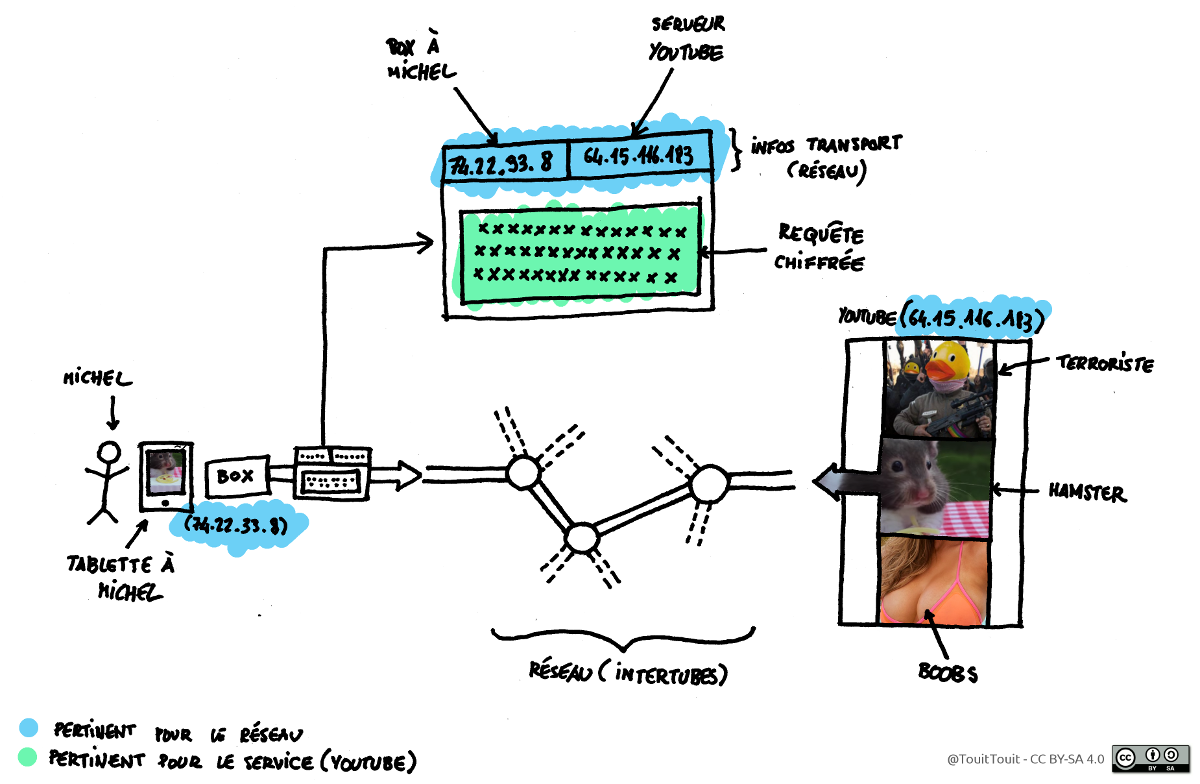 BOX À
MICHEL
SERVEUR
YOUTUBE
74.22.33.8
64.15.116.183
INFOS TRANSPORT
(RÉSEAU)
xxxxxxx xxxxx xxx
xxxxxxxxxxxxx x x
xxxxxxxxxxxxx x x
REQUÊTE
CHIFFRÉE
YOUTUBE (64.15.116.183)
TERRORISTE
HAMSTER
BOOBS
MICHEL
BOX
(74.22.33.8)
TABLETTE À
MICHEL
RÉSEAU (INTERTUBES)
PERTINENT POUR LE RÉSEAU
PERTINENT POUR LE SERVICE (YOUTUBE)
@TouitTouit - CC BY-SA 4.0
cc
BY SA